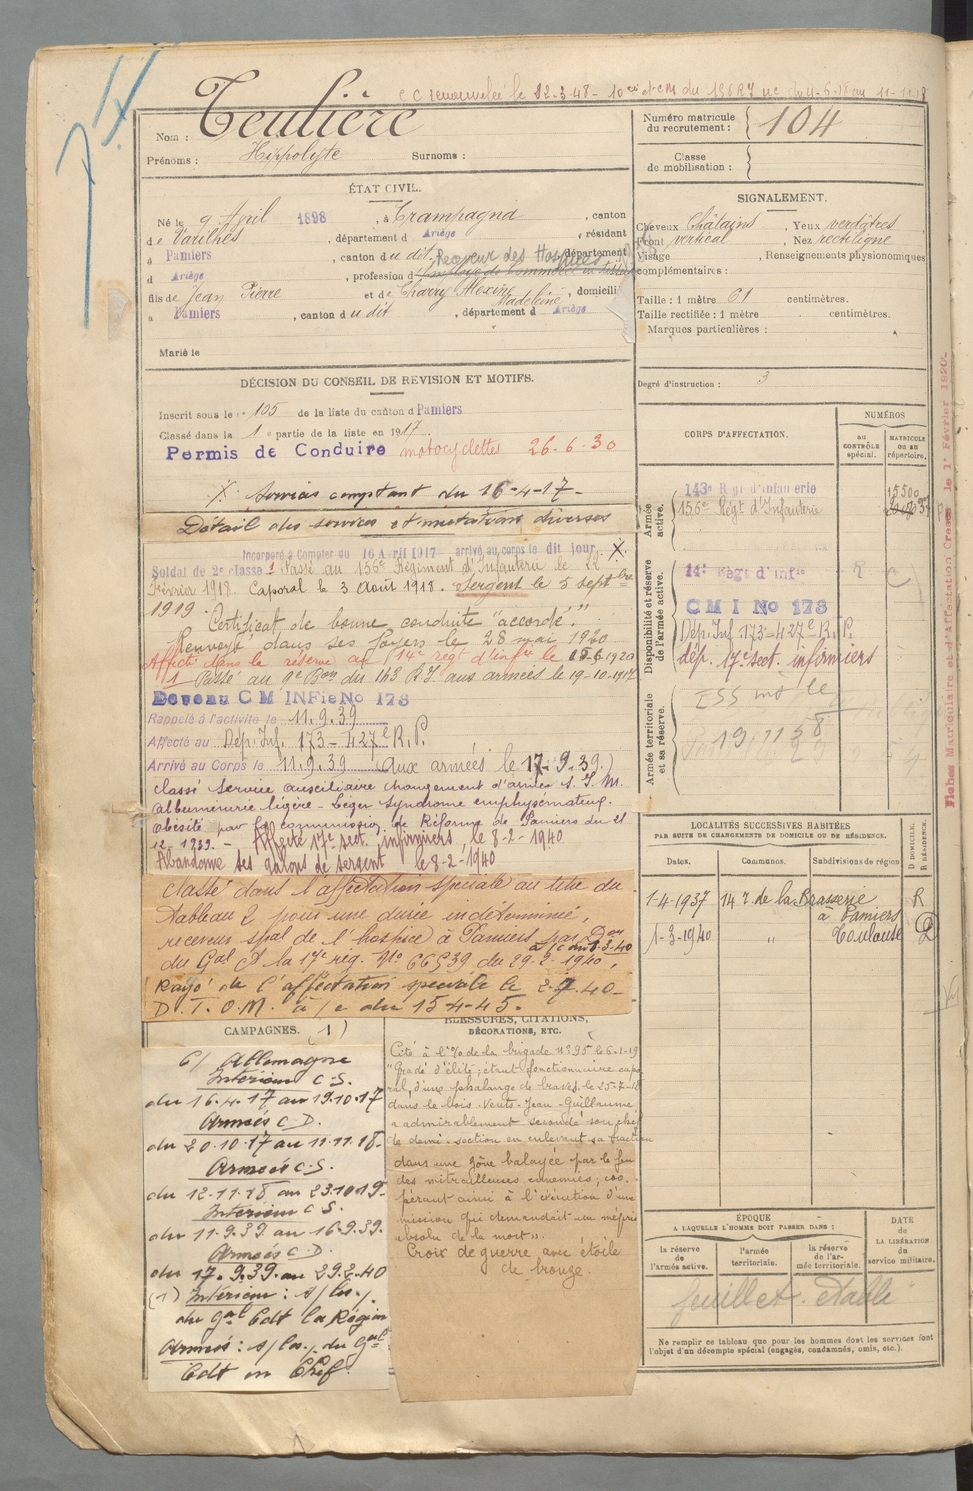 C C renouvelée le 12-3-48 - 10 et CM du 156 R I du 4-6-18 au 11-11-18
Teulière
Nom :
Prénoms : Hippolyte Surnoms :
ÉTAT CIVIL.
Né le 9 Avril 1898, à Crampagna, canton
de Varilhes, département d Ariège, résidant
à Pamiers, canton du dit, département
Receveur des Hospices
d Ariège, profession d
fils de Jean Pierre et de Charry Alexine Madeleine, domicili
à Pamiers, canton du dit, département d Ariège
Marié le
DÉCISION DU CONSEIL DE REVISION ET MOTIFS.
Inscrit sous le n° 105 de la liste du canton d Pamiers
Classé dans la 1e partie de la liste en 1917.
Permis de Conduire motocyclettes 26-6-30
X Services comptant du 16-4-17-
Détail des services et mutations diverses
Incorporé à Compter du 16 Avril 1917 arrivé au corps le dit jour. X.
Soldat de 2e classe 1 Passé au 156e Régiment d'Infanterie le 22
Février 1918. Caporal le 3 Août 1918. Sergent le 5 septbre
1919. Certificat de bonne conduite "accordé".
Renvoyé dans ses foyers le 28 mai 1920
Affecté dans la réserve au 14e régt d'infie le 15.6.1920
1 Passé au 9e Bon du 143 R.I. aux armées le 19-10-1917
Devenu C M INFie No 173
Rappelé à l'activité le 11.9.39
Affecté au Dép. Inf. 173-427e R.P.
Arrivé au Corps le 11.9.39 (Aux armées le 17.9.39.)
Classé Service auxiliaire changement d'armes S.I.M.
albuminurie légère - Léger syndrome emphysémateux.
obésité par la commission de Réforme de Pamiers du 21
12-1939. - Affecté 17e sect. infirmiers, le 8-2-1940
Abandonne ses galons de sergent le 8-2-1940
Classé dans l'affectation spéciale au titre du
tableau 2 pour une durée indéterminée,
receveur spal de l'hospice à Pamiers par Don
à/c du 1-3-40
du Gal Ct la 17e rég. No 66539 du 29-2-1940.
Rayé de l'affectation spéciale le 2-7-40-
D.T.O.M. à/c du 15-4-45.
CAMPAGNES. (1)
C/ Allemagne
Intérieur C.S.
du 16.4.17 au 19.10.17
Armées C.D.
du 20.10.17 au 11.11.18-
Armées C.S.
du 12.11.18 au 23.10.19-
Intérieur C.S.
du 11.9.39 au 16.9.39.
Armées C.D.
du 17.9.39 au 29.2.40
(1) Intérieur : s/les/.
du Gal Cdt la Région
Armées : s/les/. du Gal
Cdt en Chef.
BLESSURES, CITATIONS,
DÉCORATIONS, ETC.
Cité à l'% de la brigade N° 95 le 6-1-19
"Gradé d'élite ; étant fonctionnaire capo
ral, d'une phalange de braves, le 25-7-18
dans le bois Vents-Jean-Guillaume
a admirablement secondé son chef
de demi-section en enlevant sa fraction
dans une zône balayée par le feu
des mitrailleuses ennemies ; coo-
pérant ainsi à l'exécution d'une
mission qui demandait un mépris
absolu de la mort".
Croix de guerre avec étoile
de bronze.
Numéro matricule du recrutement : 104
Classe de mobilisation :
SIGNALEMENT.
Cheveux Châtains, Yeux verdâtres
Front vertical, Nez rectiligne
Visage, Renseignements physionomiques
complémentaires :
Taille : 1 mètre 61 centimètres.
Taille rectifiée : 1 mètre centimètres.
Marques particulières :
Degré d'instruction : 3
CORPS D'AFFECTATION.
NUMÉROS
AU CONTRÔLE spécial.
MATRICULE ou au répertoire.
Armée active.
143e Régt d'infanterie 15500
156e Régt d'Infanterie
Disponibilité et réserve de l'armée active.
14e Régt d'infie R C
C M I No 173
Dép. Inf. 173-427e R.P.
dép. 17e sect. infirmiers
Armée territoriale et sa réserve.
LOCALITÉS SUCCESSIVES HABITÉES
PAR SUITE DE CHANGEMENTS DE DOMICILE OU DE RÉSIDENCE.
Dates. Communes. Subdivisions de région D DOMICILE. R RÉSIDENCE.
1-4-1937 14 r. de la Brasserie R
à Pamiers
1-3-1940 " Toulouse D
ÉPOQUE
A LAQUELLE L'HOMME DOIT PASSER DANS :
la réserve de l'armée active.
l'armée territoriale.
la réserve de l'armée territoriale.
DATE de LA LIBÉRATION du service militaire.
feuillet établi
Ne remplir ce tableau que pour les hommes dont les services font
l'objet d'un décompte spécial (engagés, condamnés, omis, etc.).
Fiches Matriculaire et d'Affectation Créées le 1er Février 1920.